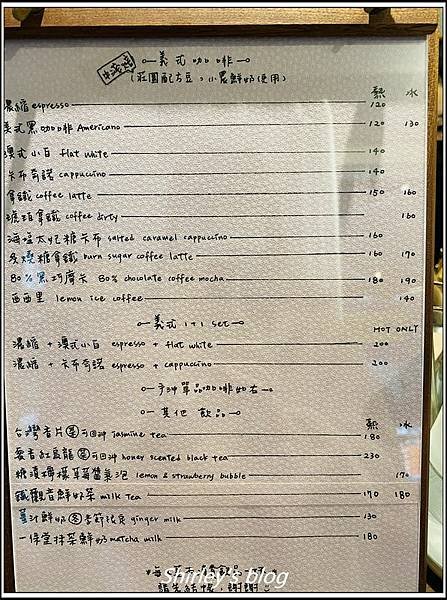 義式咖啡
(莊園配方豆，小農鮮奶使用)
熱 冰
濃縮 espresso 120
美式黑咖啡 Americano 120 130
澳式小白 flat white 140
卡布奇諾 cappuccino 140
拿鐵 coffee latte 150 160
琥珀拿鐵 coffee dirty 160
海鹽太妃糖卡布 salted caramel cappuccino 160
炙燒糖拿鐵 burn sugar coffee latte 160 170
80%黑巧摩卡 80% chocolate coffee mocha 180 190
西西里 lemon ice coffee 140
義式 1+1 set
HOT ONLY
濃縮 + 澳式小白 espresso + flat white 200
濃縮 + 卡布奇諾 espresso + cappuccino 200
手沖單品咖啡如右
其他 飲品
熱 冰
台灣香片 可回沖 Jasmine tea 180
蜜香紅烏龍 可回沖 honey scented black tea 230
糖漬檸檬草莓醬氣泡 lemon & strawberry bubble 170
鐵觀音鮮奶茶 milk tea 170 180
薑汁鮮奶 冬季節限定 ginger milk 130
一保堂抹茶鮮奶 matcha milk 180
請先結帳，謝謝
Shirley's blog